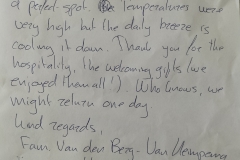 a perfect spot. Temperatures were
very high but the daily breeze is
cooling it down. Thank you for the
hospitality, the welcoming gifts (we
enjoyed them all!). Who knows, we
might return one day.
Kind regards,
Fam. Van den Berg - Van